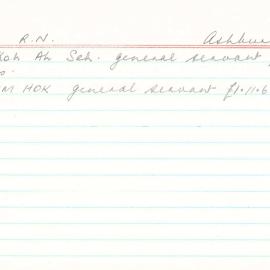 R.N. Ashbu
Koh Ah Seh. general servant
UM HOK general servant £1.11.6